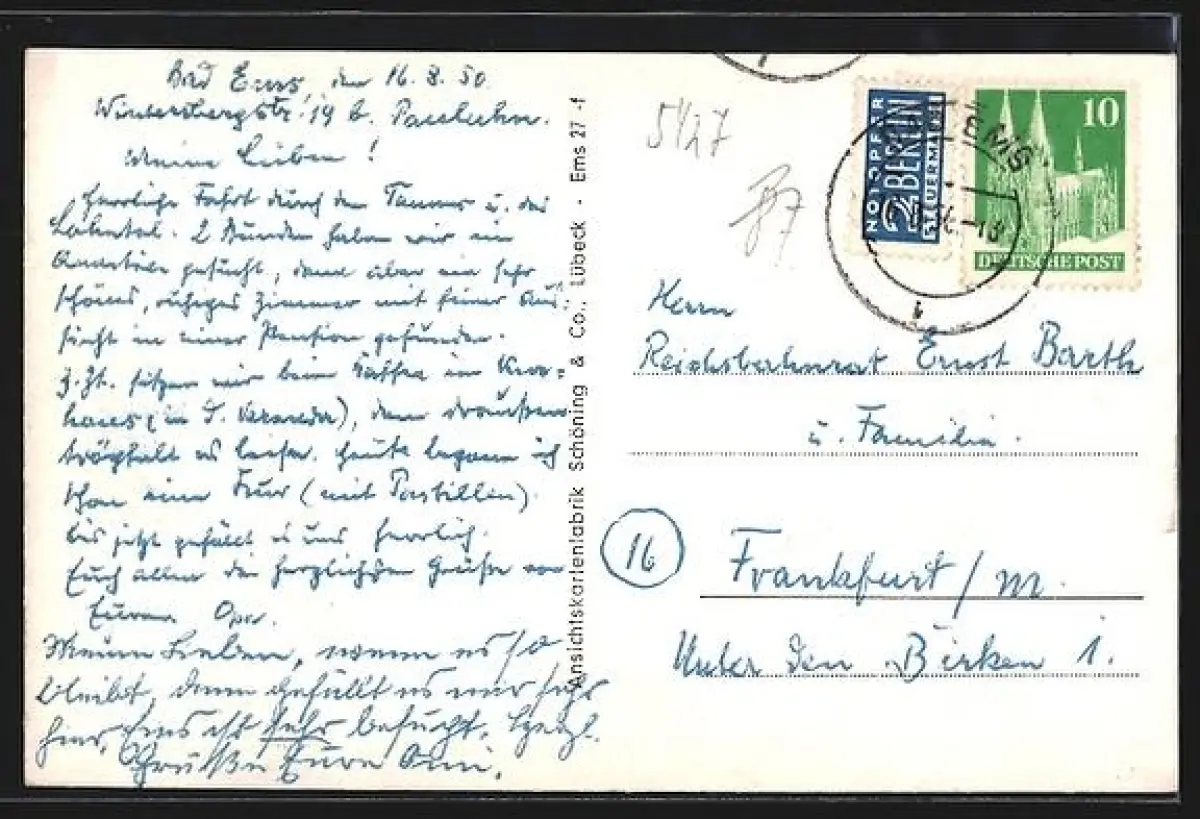 Bad Ems, den 16.8.50
Wintersbergstr. 19 b. Pauluhn.
Meine Lieben!
Herrliche Fahrt durch den Taunus u. das
Lahntal. 2 Stunden haben wir ein
gesucht, dann aber ein sehr
schönes, ruhiges Zimmer mit feiner Aus-
sicht in einer Pension gefunden.
Z. Zt. sitzen wir beim Kaffee im Kur-
haus (in d. Veranda), denn draußen
tröpfelt es leise. Heute begann ich
schon eine Kur (mit Pastillen).
Bis jetzt gefällt es uns herrlich.
Euch allen die herzlichsten Grüße von
Eurem Opa.
Meine Lieben, wenn es so
bleibt, dann gefällt es mir sehr
hier, Ems ist sehr besucht. Herzl.
Grüße Eure Omi.
Ansichtskartenfabrik Schöning & Co., Lübeck · Ems 27 -f
5427
NOTOPFER
2 BERLIN
STEUERMARKE
EMS
-18
10
DEUTSCHE POST
Herrn
Reichsbahnrat Ernst Barth
u. Familie.
16
Frankfurt/M.
Unter den Birken 1.